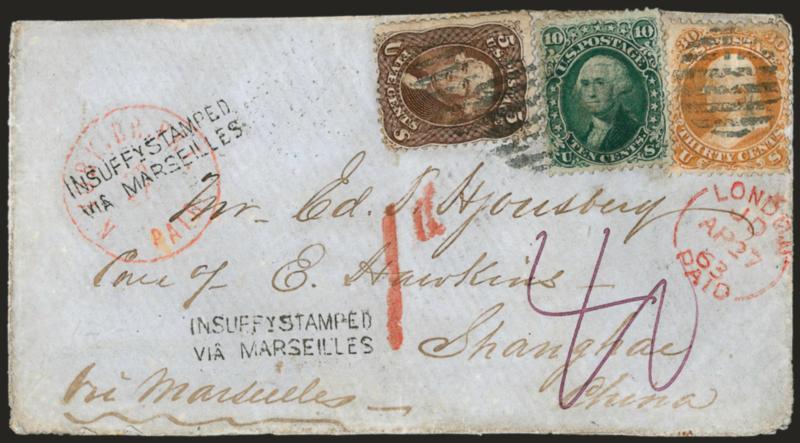 5 5
U.S. POSTAGE
FIVE CENTS
10 10
U.S. POSTAGE
TEN CENTS
U S
30 30
THIRTY CENTS
U S
INSUFFYSTAMPED
VIA MARSEILLES
PAID
LONDON
AP 27
63
PAID
Mr Ed.
1d
Care of E. Hawkins
40
INSUFFYSTAMPED
VIA MARSEILLES
Shanghae
via Marseilles
China